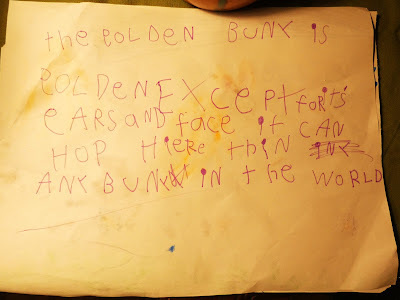 the GOLDEN BUNY is
GOLDeN EXCEPT for it's
eARS AND face it CAN
HOP HieRe thiN
ANY BUNY iN the WORLD